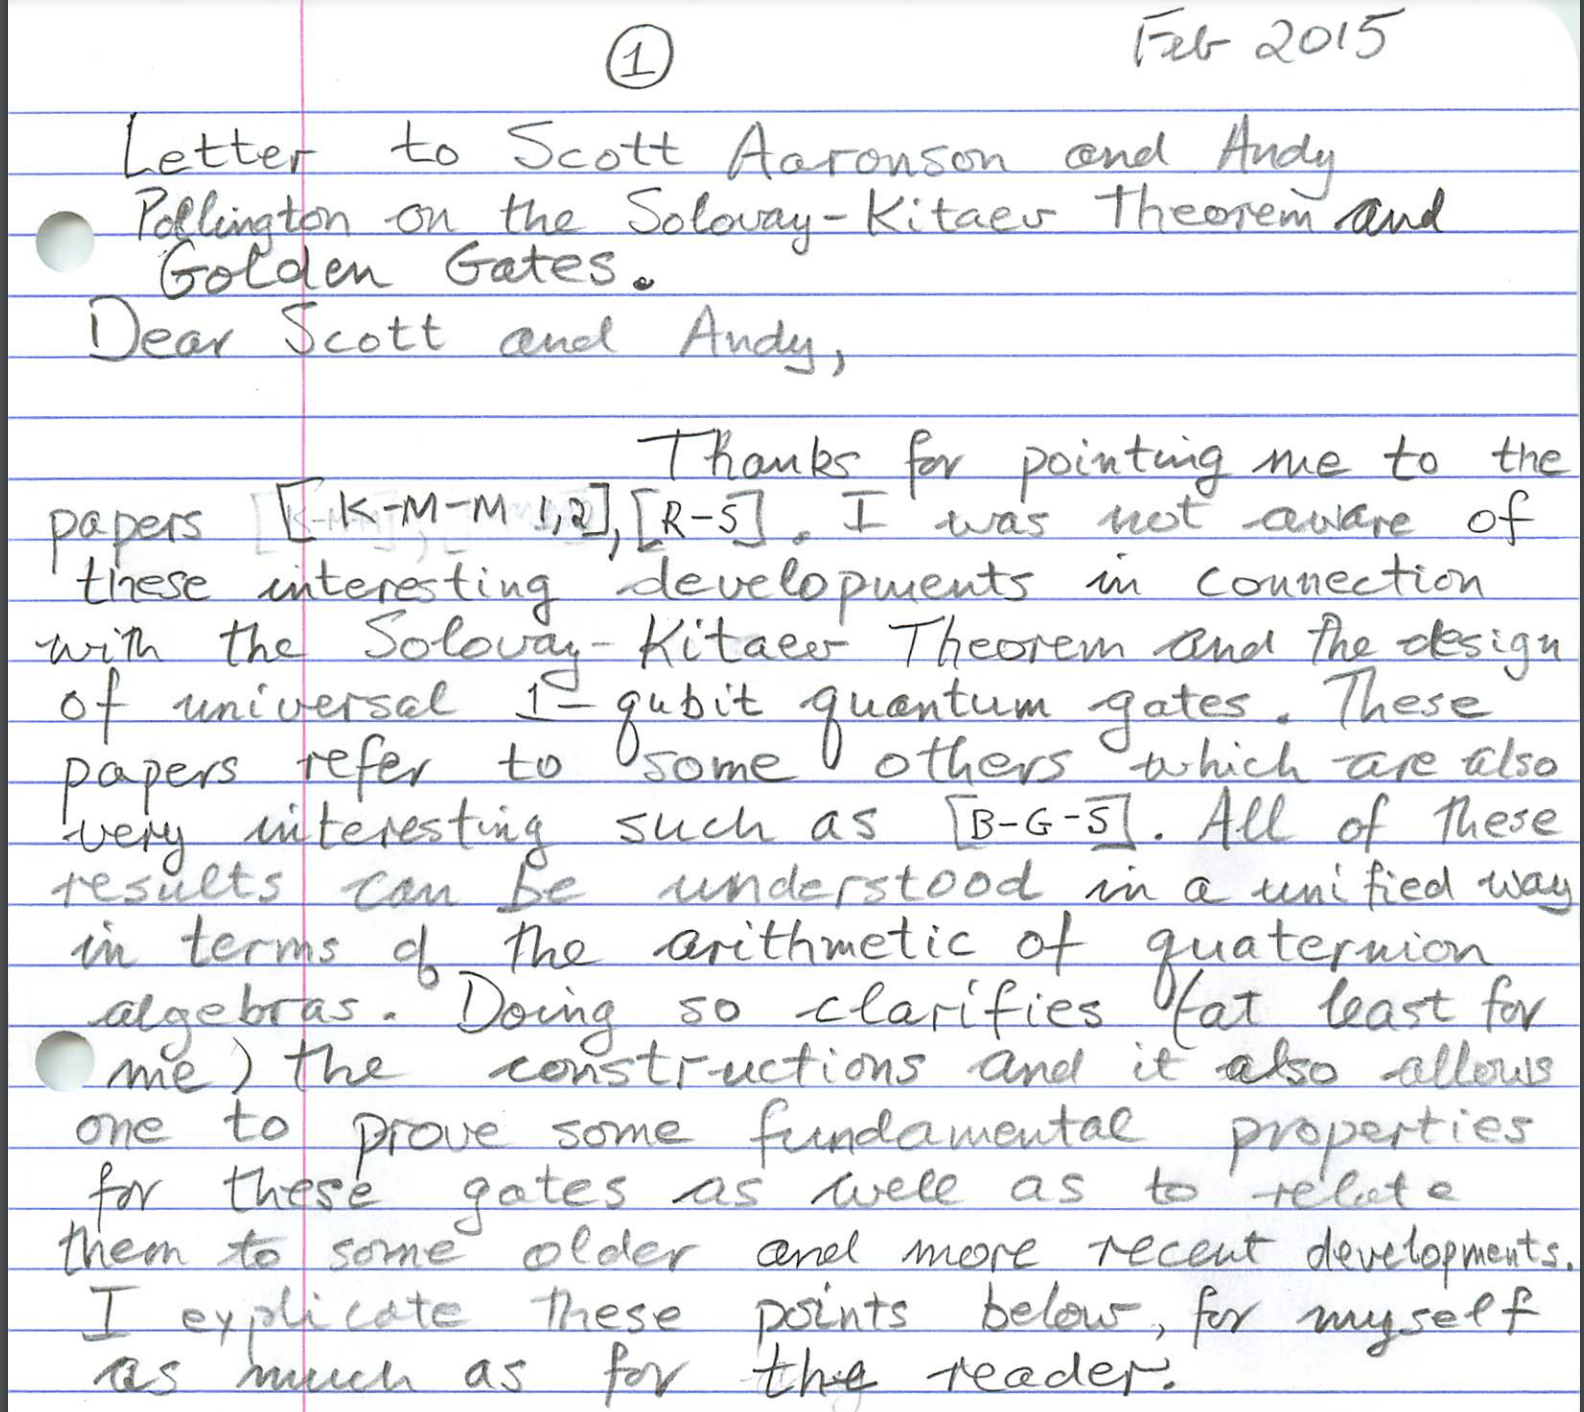 ① Feb 2015
Letter to Scott Aaronson and Andy
Pollington on the Solovay-Kitaev Theorem and
Golden Gates.
Dear Scott and Andy,
Thanks for pointing me to the
papers [K-M-M 1,2], [R-S]. I was not aware of
these interesting developments in connection
with the Solovay-Kitaev Theorem and the design
of universal 1-qubit quantum gates. These
papers refer to some others which are also
very interesting such as [B-G-S]. All of these
results can be understood in a unified way
in terms of the arithmetic of quaternion
algebras. Doing so clarifies (at least for
me) the constructions and it also allows
one to prove some fundamental properties
for these gates as well as to relate
them to some older and more recent developments.
I explicate these points below, for myself
as much as for the reader.